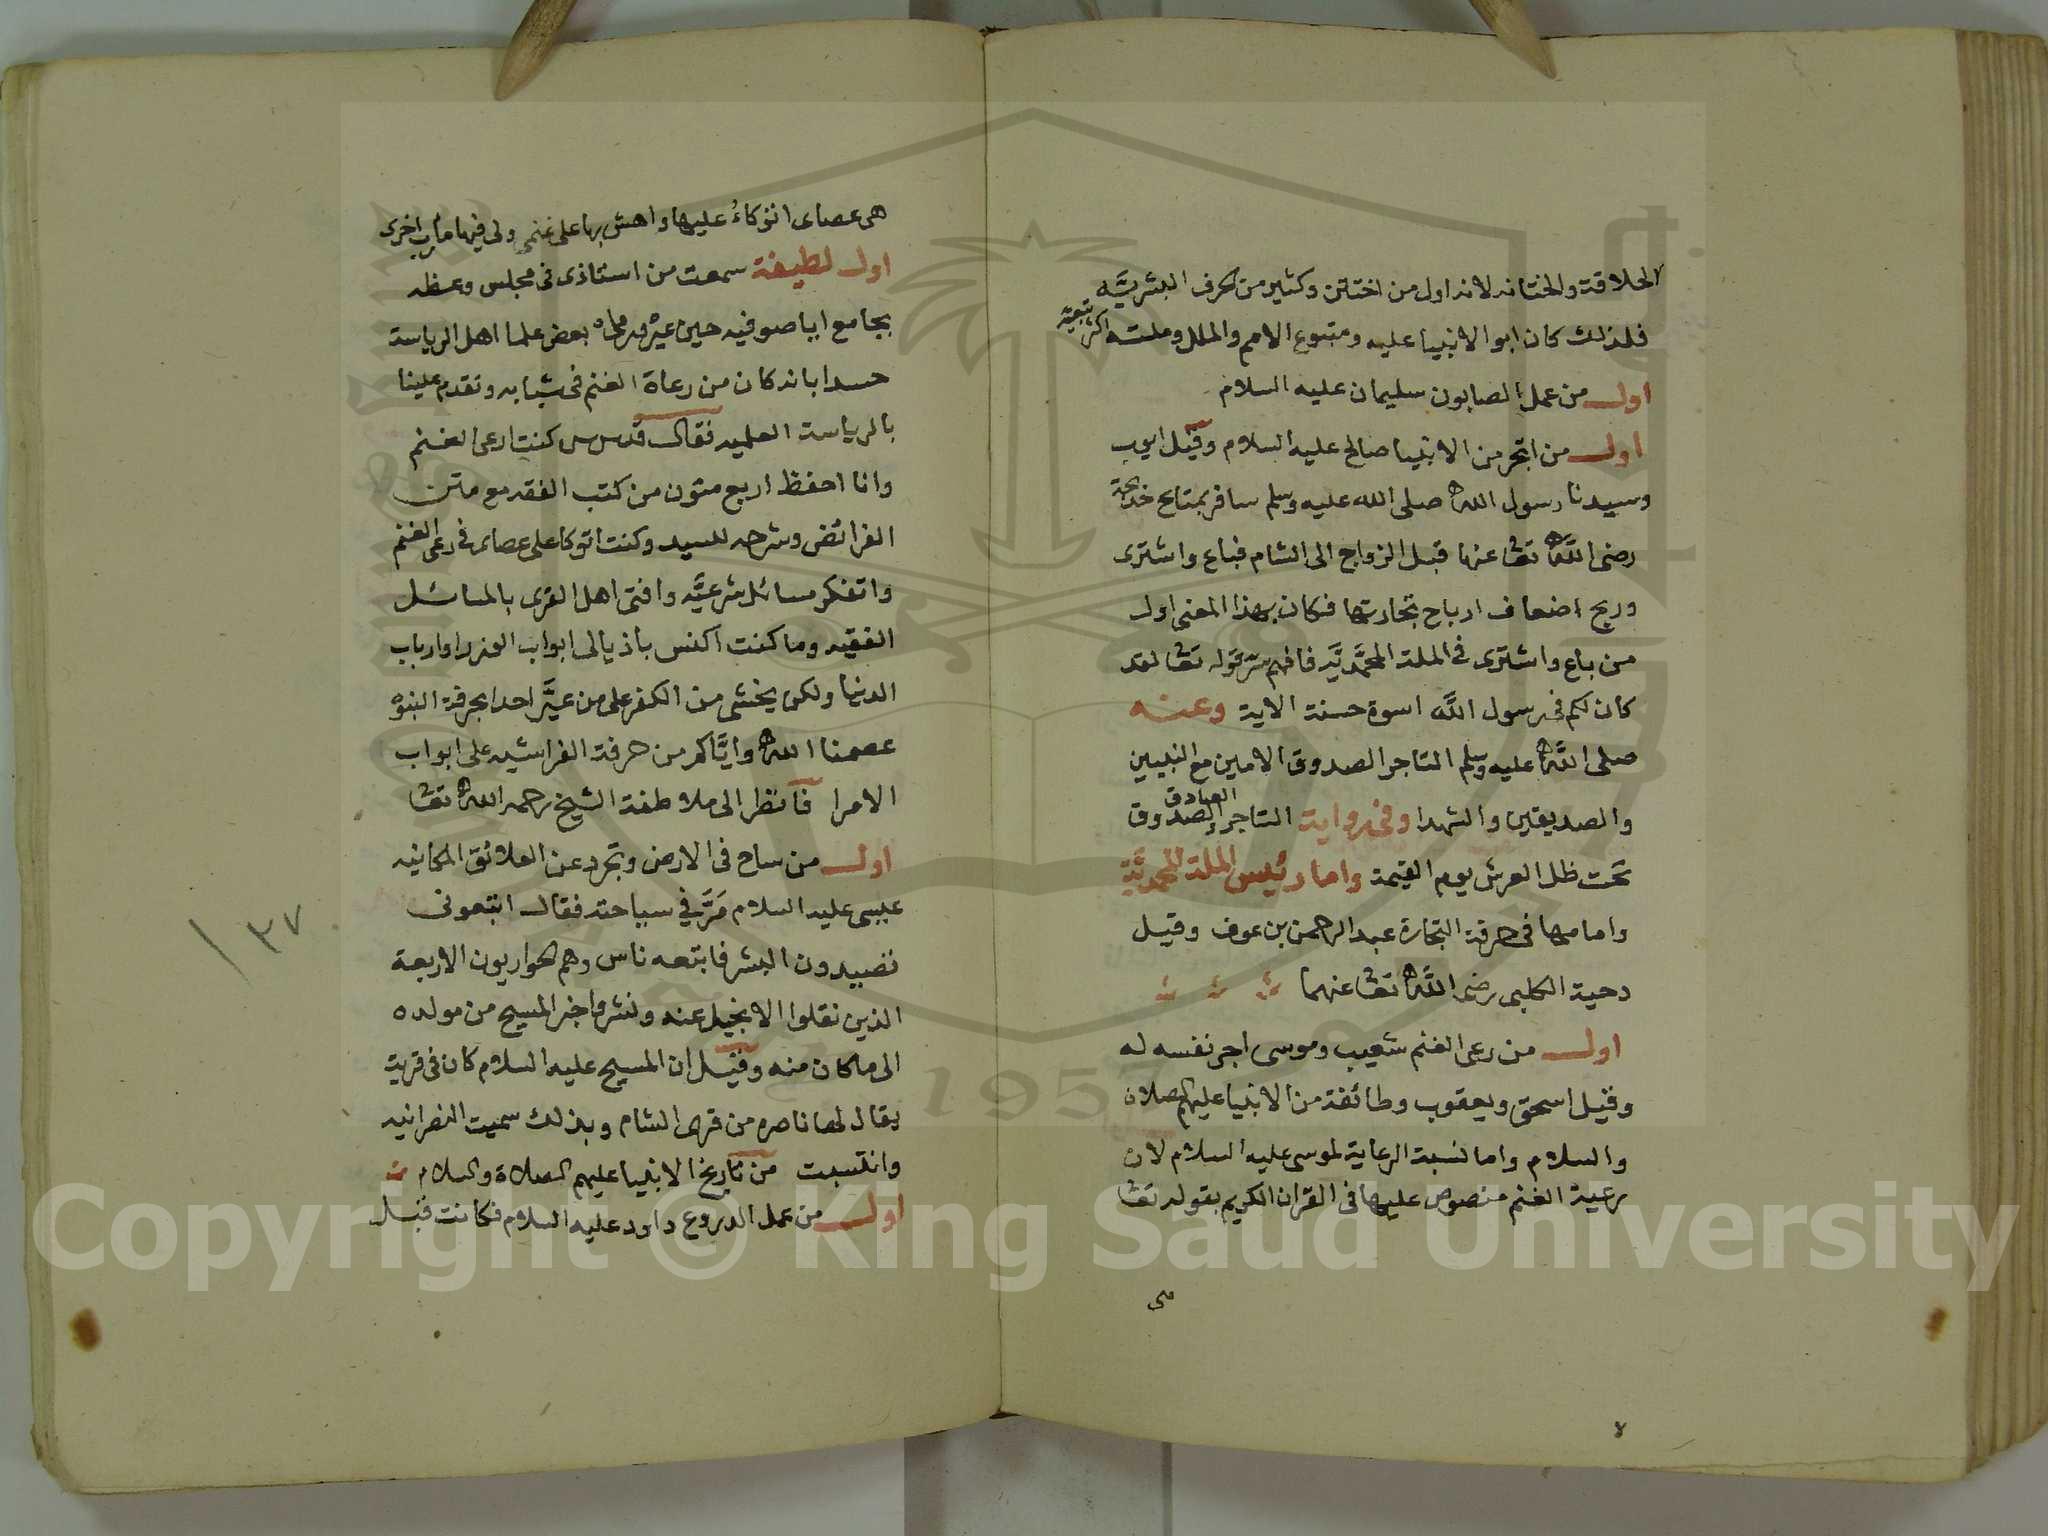 الحلاقة والختانه لانه اول من اختتن وكثير من الحرف البشريّه
فلذلك كان ابو الانبيا عليه ومتبوع الامم والملل وملته اكثر تبعيّه
اول من عمل الصابون سليمان عليه السلام
اول من اتجر من الانبيا صالح عليه السلام وقيل ايوب
وسيدنا رسول الله صلى الله عليه وسلم سافر بمتاع خديجة
رضى الله تعا عنها قبل الزواج الى الشام فباع واشترى
وربح اضعاف ارباح تجارتها فكان بهذا المعنى اول
من باع واشترى فى الملة المحمّديّه فافهم سرّ قوله تعا لقد
كان لكم فى رسول الله اسوة حسنة الاية وعنه
صلى الله عليه وسلم التاجر الصدوق الامين مع النبيين
والصديقين والشهدا وفى رواية التاجر الصدوق
الصادق
تحت ظل العرش يوم القيمة واما رئيس الملة المحمديّة
وامامها فى حرفة التجارة عبد الرحمن بن عوف وقيل
دحية الكلبى رضى الله تعا عنهما
اول من رعى الغنم شعيب وموسى اجر نفسه له
وقيل اسحق ويعقوب وطائفة من الانبيا عليهم الصلاة
والسلام واما نسبة الرعاية لموسى عليه السلام لان
رعية الغنم منصوص عليها فى القران الكريم بقوله تعا
هى
هى عصاى اتوكاءُ عليها واهش بها على غنمى ولى فيها مأرب اخرى
اول لطيفة سمعت من استاذى فى مجلس وعظه
بجامع اياصوفيه حين عيّره بعض علما اهل الرياسة
حسدا بانه كان من رعاة الغنم فى شبابه وتقدم علينا
بالرياسة العلميه فقال قدس س كنت ارعى الغنم
وانا احفظ اربع متون من كتب الفقه مع متن
الفرائض وشرحه للسيد وكنت اتوكا على عصاى فى رعى الغنم
واتفكر مسائل شرعيّه وافتى اهل القرى بالمسائل
الفقيه وما كنت اكنس باذيالى ابواب الوزرا وارباب
الدنيا ولكن يخشى من الكفر على من عيّر احدا بحرفة النبوّ
عصمنا الله وايّاكم من حرفة الفراشيه على ابواب
الامرا فانظر الى ملاطفة الشيخ رحمه الله تعا
اول من ساح فى الارض وتجرد عن العلائق المكانيه
عيسى عليه السلام مَرَّ فى سياحته فقال اتبعونى
تصيدون البشر فاتبعه ناس وهم الحواريون الاربعة
الذين نقلوا الانجيل عنه ونشروا خبر المسيح من مولده
الى ما كان منه وقيل ان المسيح عليه السلام كان فى قرية
يقال لها ناصره من قرى الشام وبذلك سميت النصرانيه
وانتسبت من تاريخ الانبيا عليهم الصلاة والسلام
اول من عمل الدروع داود عليه السلام فكانت قبل
٣٧
1957
Copyright © King Saud University